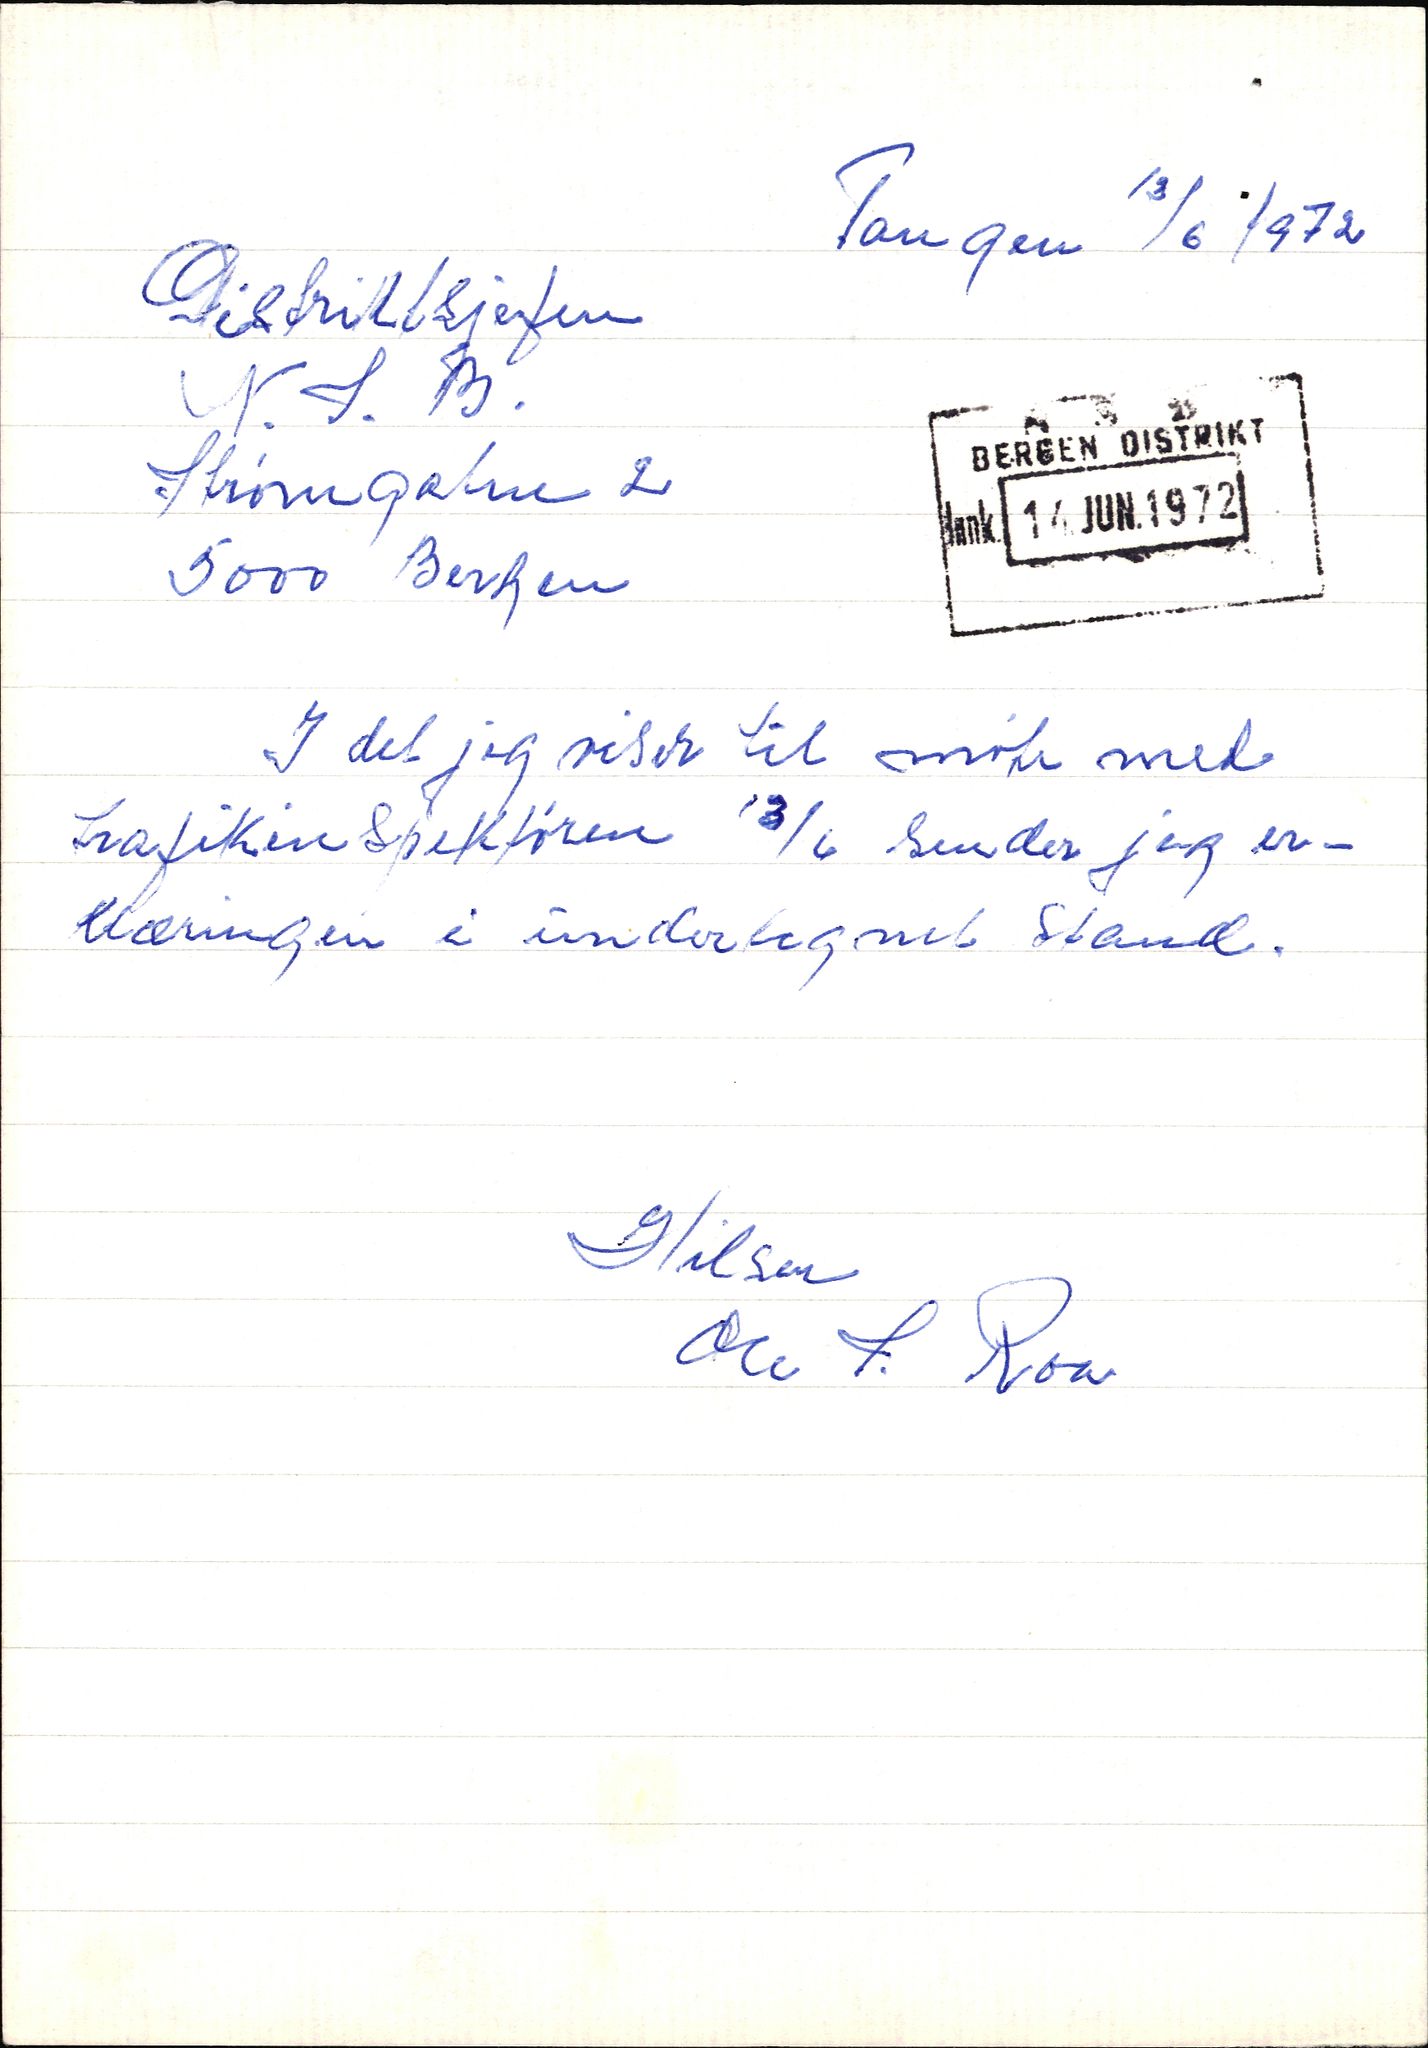 Tangen 13/6 1972
Distriktsjefen
N. S. B.
Strømgaten 2
5000 Bergen
BERGEN DISTRIKT
Jank. 14. JUN. 1972
I det jeg viser til møte med
trafikinspektøren 13/6 sender jeg er-
klæringen i undertegnet stand.
Hilsen
Ole S. Roa